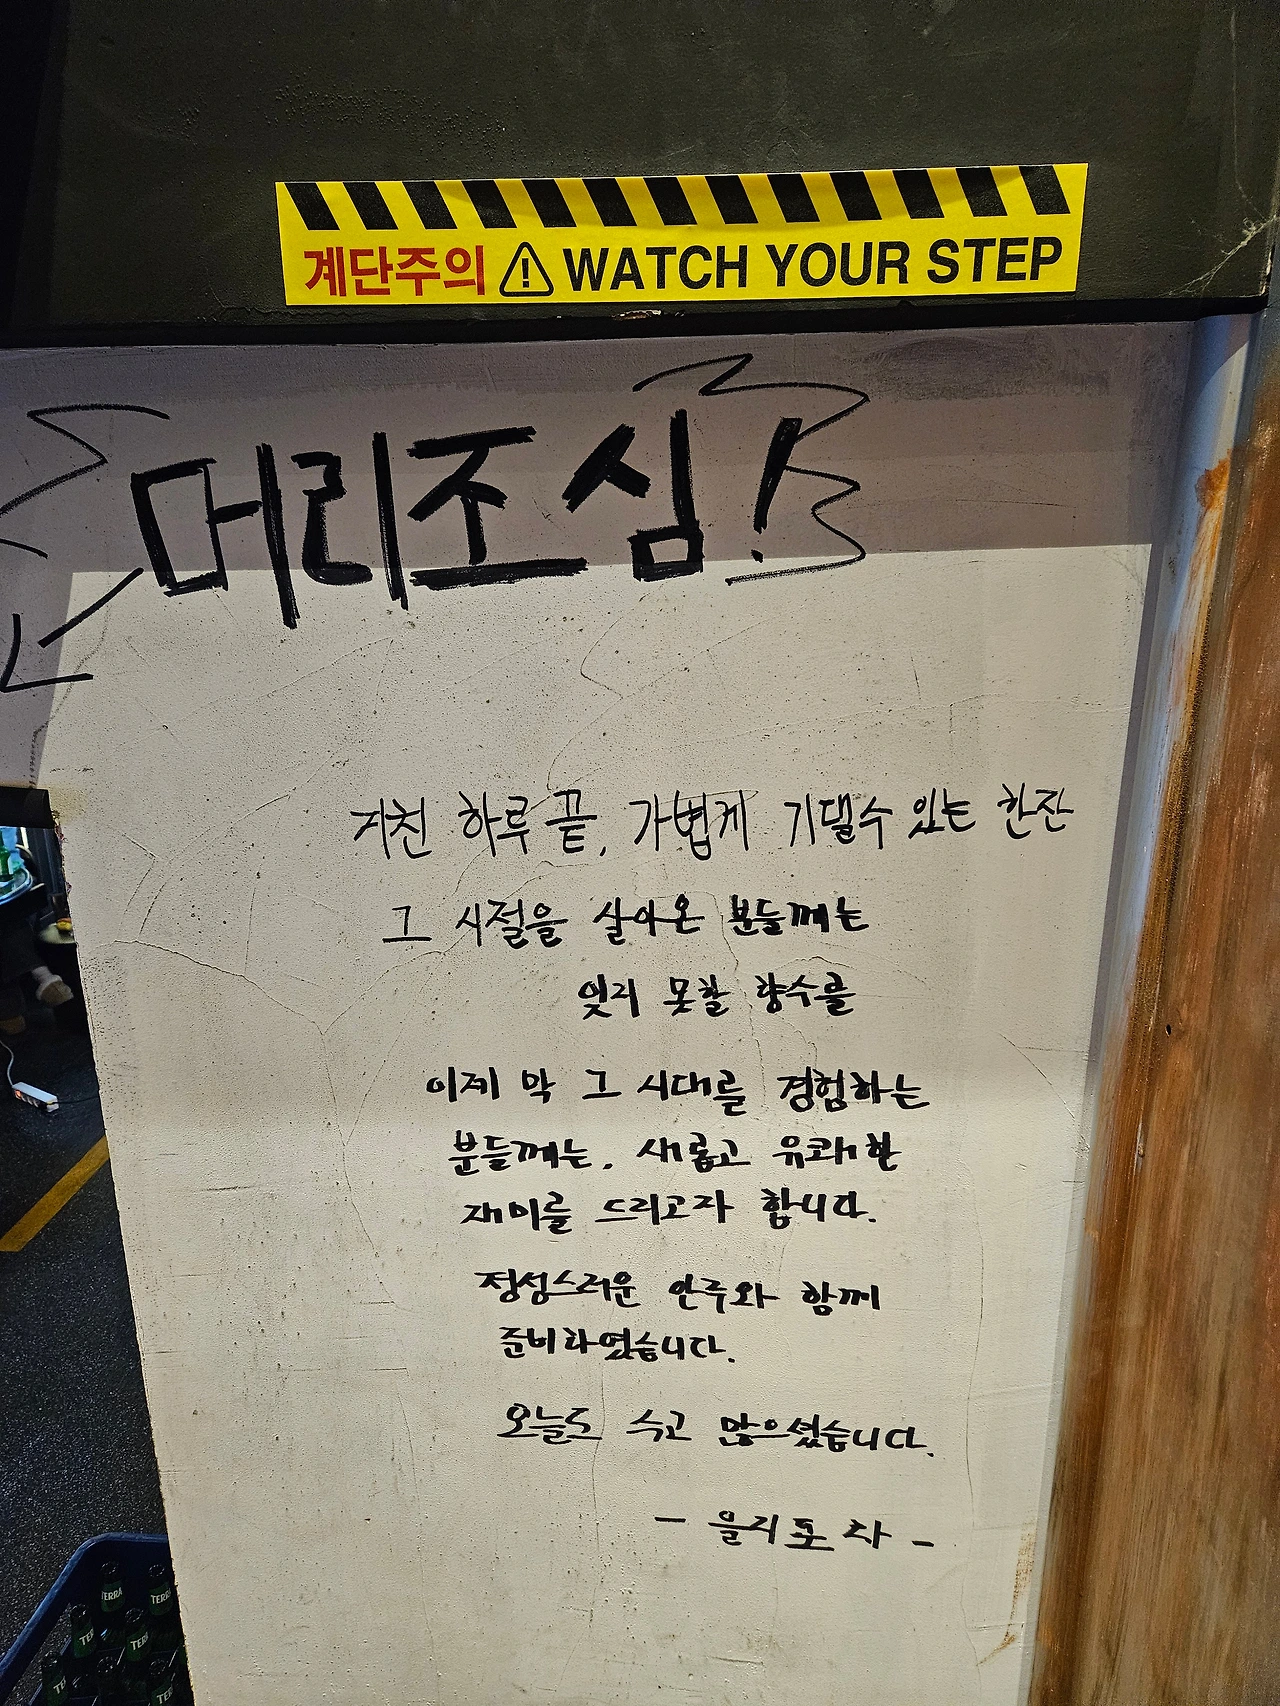 계단주의 WATCH YOUR STEP
머리조심!
지친 하루 끝, 가볍게 기댈수 있는 한잔
그 시절을 살아온 분들께는
잊지 못할 향수를
이제 막 그 시대를 경험하는
분들께는, 새롭고 유쾌한
재미를 드리고자 합니다.
정성스러운 안주와 함께
준비하였습니다.
오늘도 수고 많으셨습니다.
- 을지포차 -
TERRA
TERRA